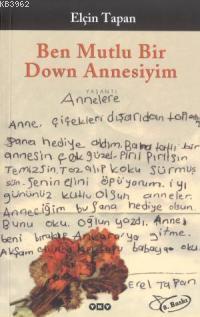 63962
Elçin Tapan
Ben Mutlu Bir
Down Annesiyim
YAŞANTI
Annelere
Anne, çiçekleri dışarıdan
Sana hediye aldım. Bana tatlı bir
annesin çok güzel. Pırıl Pırılsın
Temizsin. Toz alıp koku sürmüş
sün. Şenin elini öpüyorum. iyi
gününüz kutlu olsun anneler.
Anneciğim bu şana hediye olsun.
Bunu oku. Oğlun yazdı. Annes
beni bırakıp Ankara'ya gitme.
Akşam olunca babaya oku.
Erel TAPAN
8. Baskı
YKY